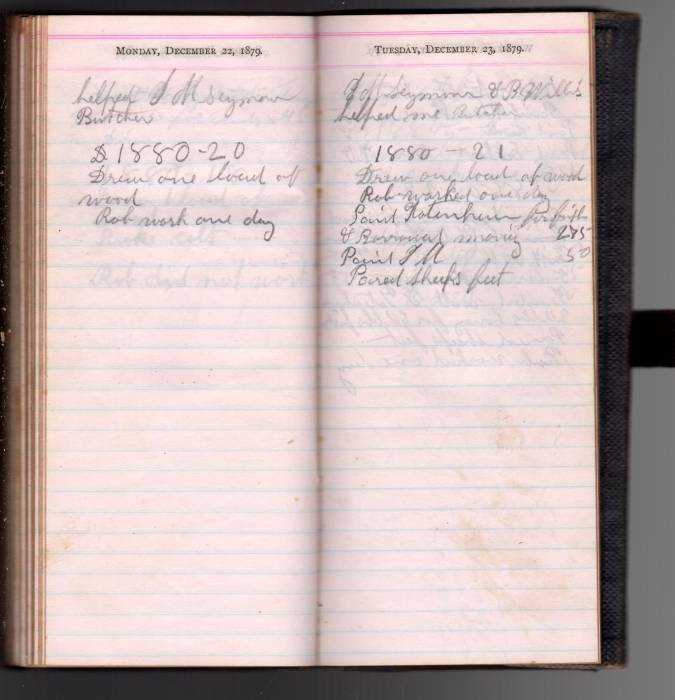 MONDAY, DECEMBER 22, 1879.
helped J M Seymour
Butcher
D 1880-20
Drew one load of
wood
Rob work one day
Rob did not work
TUESDAY, DECEMBER 23, 1879.
J M Seymour & B Willis
helped me Butcher
1880 - 21
Drew one load of wood
Rob worked one day
Paid for
& Borrowed money 275
Paid J M 50
Pared Sheeps feet